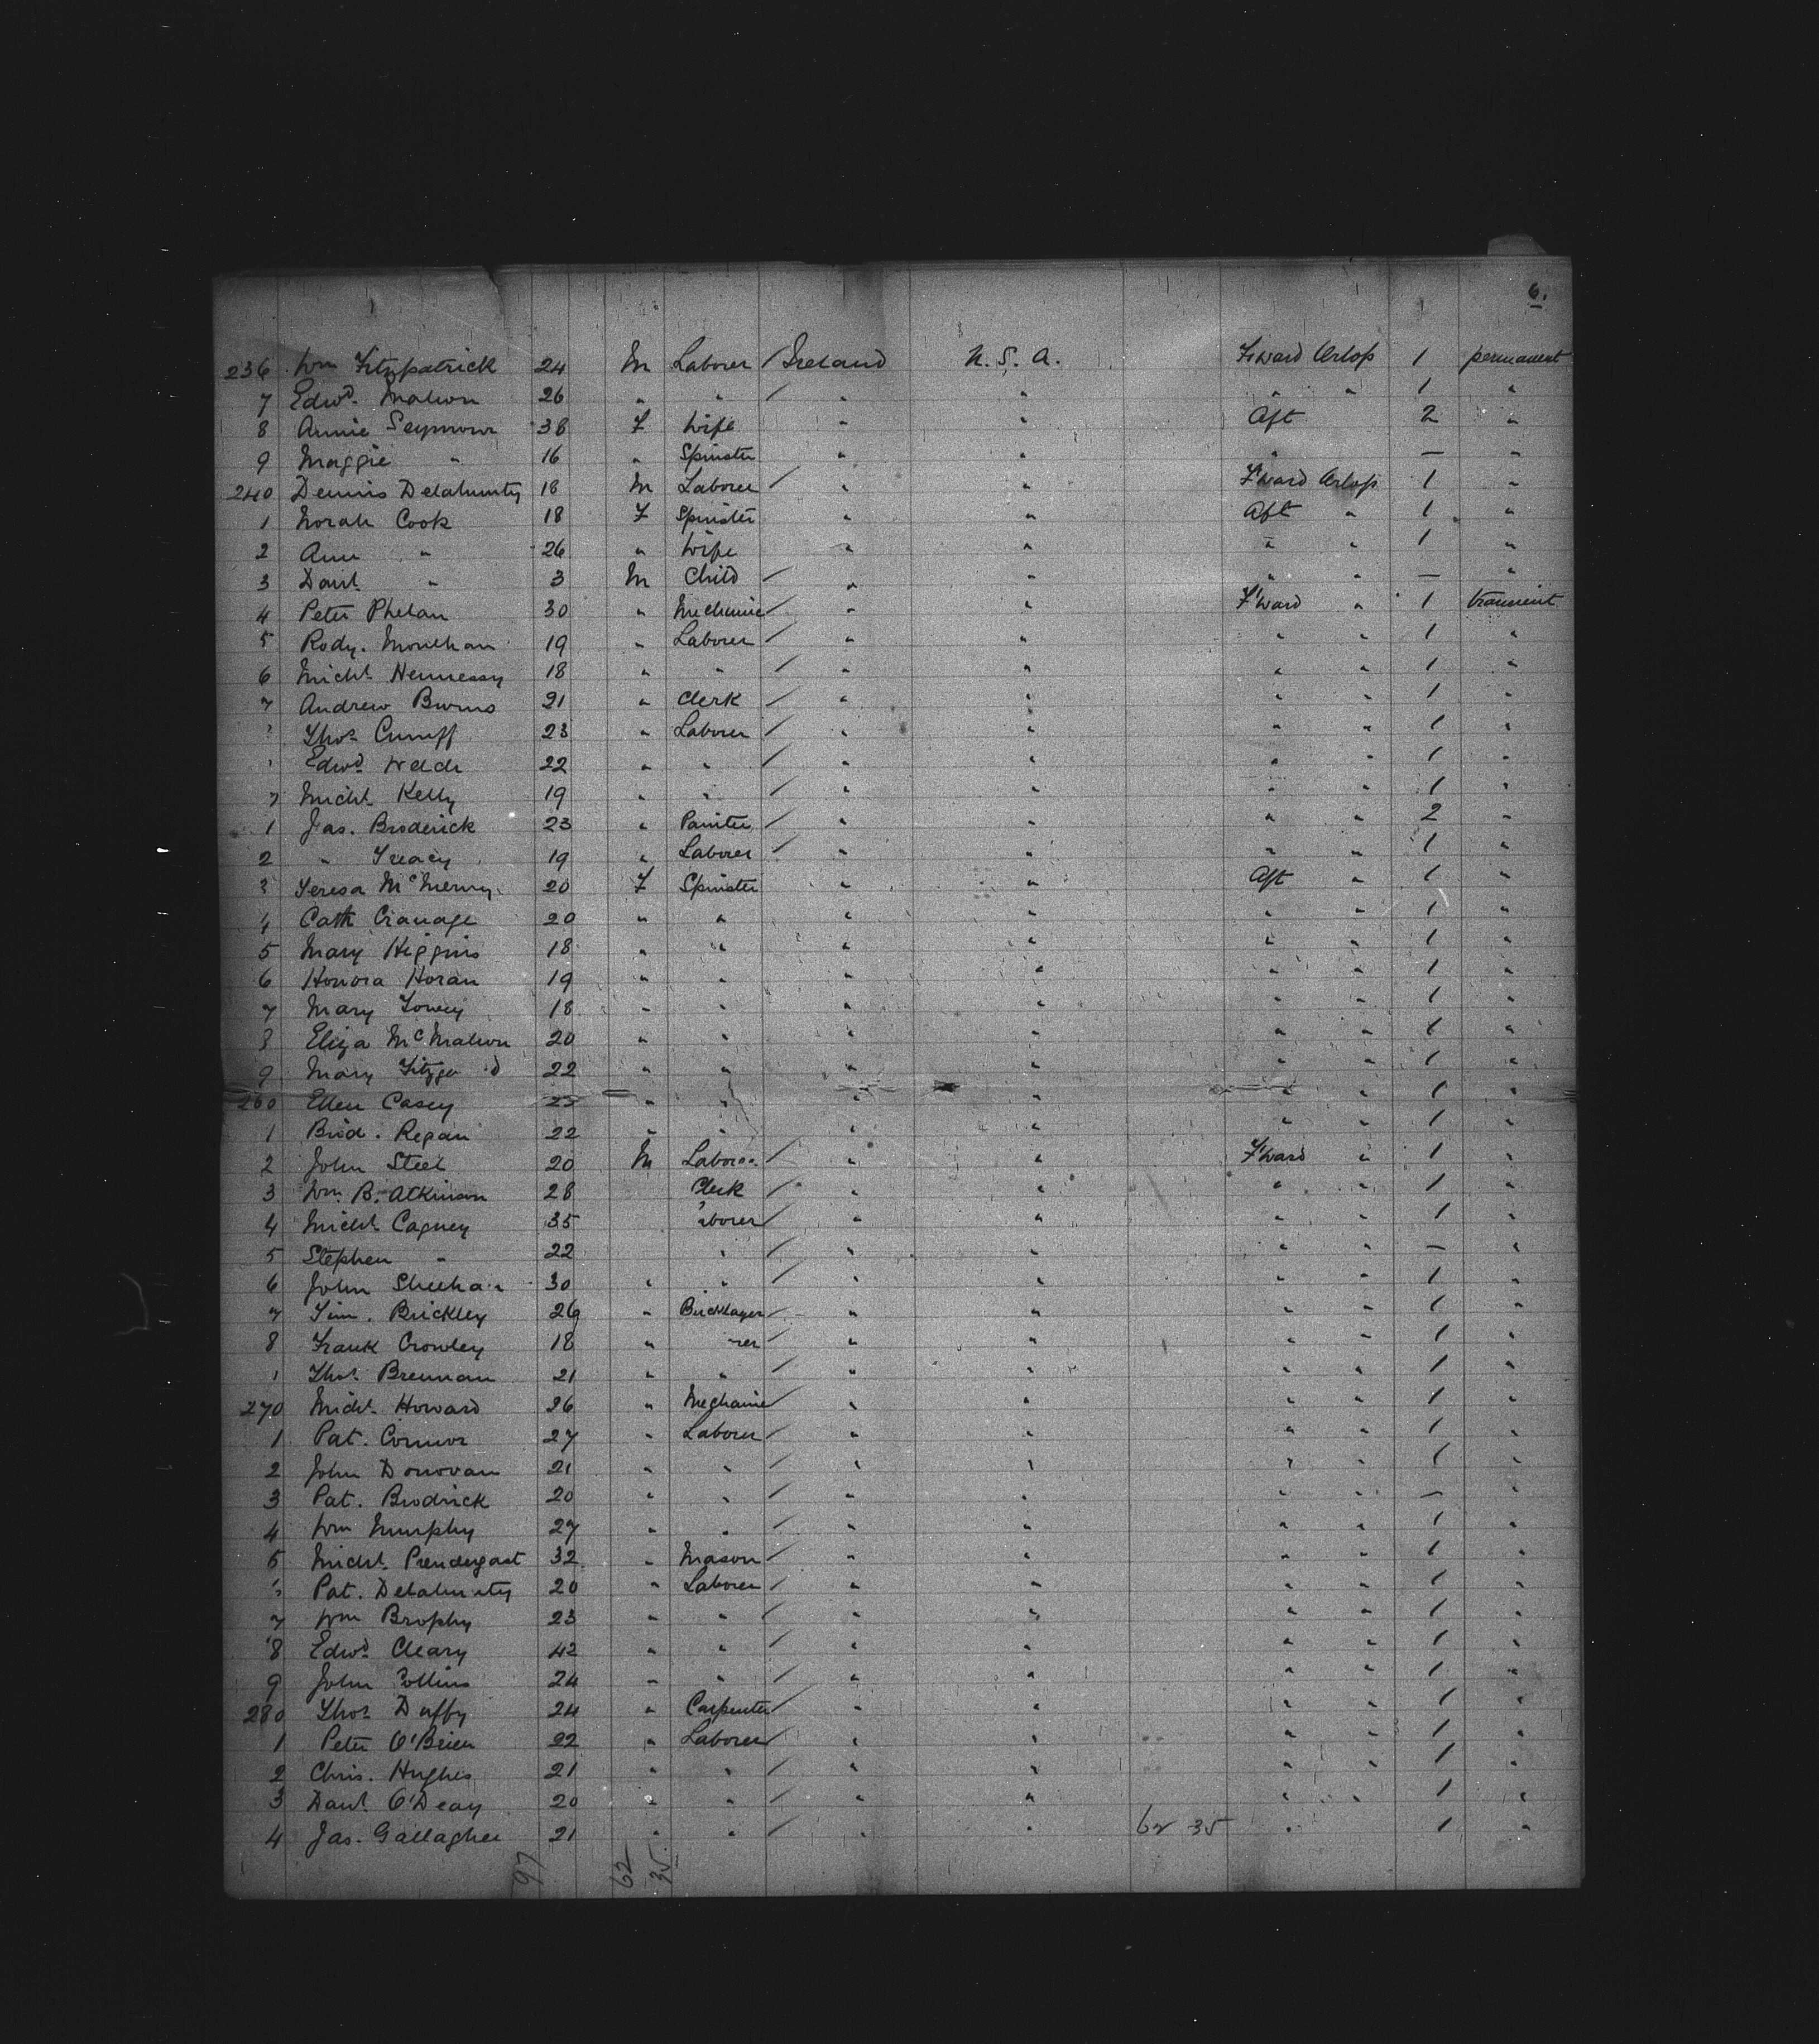 6.
236 Wm Fitzpatrick 24 M Laborer / Ireland U.S.A. F'ward Orlop 1 permanent
7 Edwd. Mahon 26 " " / " " " " 1 "
8 Annie Seymour 38 F Wife " " Aft 2 "
9 Maggie " 16 " Spinster " " " — "
240 Dennis Delahunty 18 M Laborer / " " F'ward Orlop 1 "
1 Norah Cook 18 F Spinster " " Aft " 1 "
2 Ann " 26 " Wife " " " " 1 "
3 Danl. " 3 M Child / " " " " — "
4 Peter Phelan 30 " Mechanic / " " F'ward " 1 transient
5 Rody. Moulhan 19 " Laborer / " " " " 1 "
6 Michl. Hennessy 18 " " / " " " " 1 "
7 Andrew Burns 21 " Clerk / " " " " 1 "
Thos. Cunniff 23 " Laborer / " " " " 1 "
Edwd. Welch 22 " " / " " " " 1 "
Michl. Kelly 19 " " / " " " " 1 "
1 Jas. Broderick 23 " Painter / " " " " 2 "
2 " Treacy 19 " Laborer / " " " " 1 "
Teresa McInerny 20 F Spinster " " Aft " 1 "
4 Cath Cranage 20 " " " " " " 1 "
5 Mary Higgins 18 " " " " " " 1 "
6 Honora Horan 19 " " " " " " 1 "
7 Mary Lowey 18 " " " " " " 1 "
8 Eliza McMahon 20 " " " " " " 1 "
9 Mary 22 " " " " " " 1 "
260 Ellen Casey 25 " " " " " " 1 "
1 Brid. Regan 22 " " " " " " 1 "
2 John Steel 20 M Laborer / " " F'ward " 1 "
3 Wm. B. Atkinson 28 Clerk / " " " " 1 "
4 Michl. Cagney 35 aborer / " " " " 1 "
5 Stephen " 22 " / " " " " — "
6 John Sheehan 30 " " / " " " " 1 "
7 Tim. Brickley 26 " Bricklayer / " " " " 1 "
8 Frank Crowley 18 " rer / " " " " 1 "
Thos. Brennan 21 " " / " " " " 1 "
270 Michl. Howard 26 " Mechanic / " " " " 1 "
1 Pat. Connor 27 " Laborer / " " " " 1 "
2 John Donovan 21 " " / " " " " 1 "
3 Pat. Brodrick 20 " " / " " " " — "
4 Wm Murphy 27 " " / " " " " 1 "
5 Michl. Prendergast 32 " Mason / " " " " 1 "
Pat. Delahunty 20 " Laborer / " " " " 1 "
7 Wm Brophy 23 " " / " " " " 1 "
8 Edwd. Cleary 42 " " / " " " " 1 "
9 John Collins 24 " " / " " " " 1 "
280 Thos. Duffy 24 " Carpenter / " " " " 1 "
1 Peter O'Brien 22 " Laborer / " " " " 1 "
2 Chris. Hughes 21 " " / " " " " 1 "
3 Danl. O'Deay 20 " " / " " " " 1 "
4 Jas. Gallagher 21 " " / " " 62 35 " 1 "
97 62 35